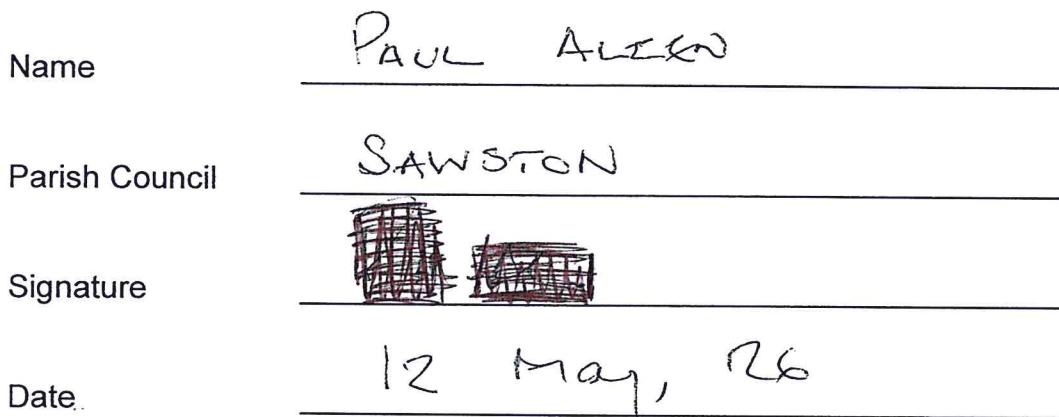 Name PAUL ALIEN
Parish Council SAWSTON
Signature
Date 12 May, 26